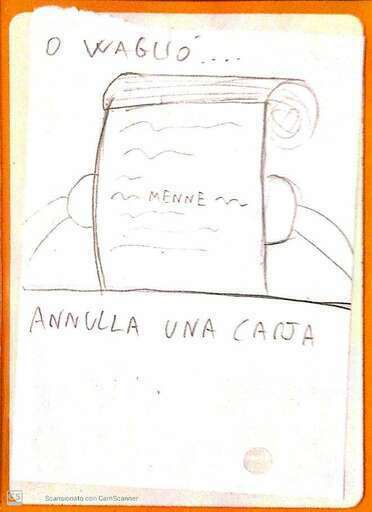 O WAGLIÓ....
MENNE
ANNULLA UNA CARTA
CS Scansionato con CamScanner